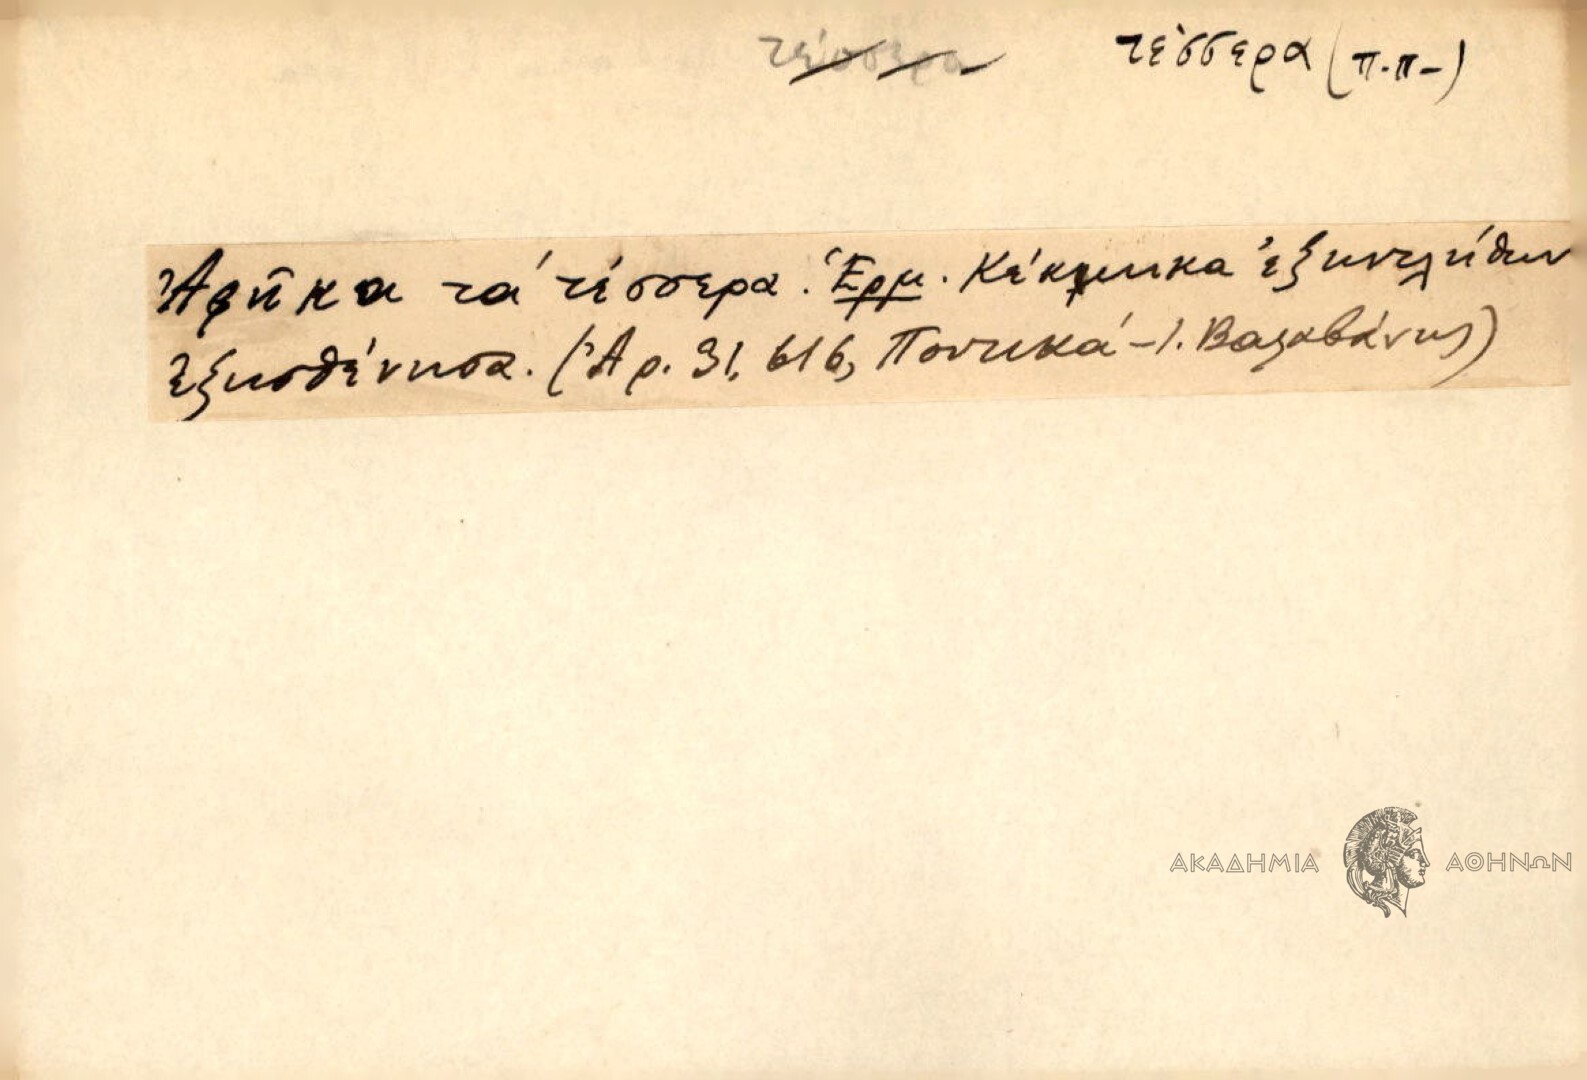 τέσσερα τέσσερα (π.π-)
Ἀφῆκα τά τέσσερα. Ἑρμ. Κέκμηκα ἐξηντλήθην
ἐξησθένησα. (Ἀρ. 31, 616, Ποντικά - Ι. Βαλαβάνης)
ΑΚΑΔΗΜΙΑ ΑΘΗΝΩΝ